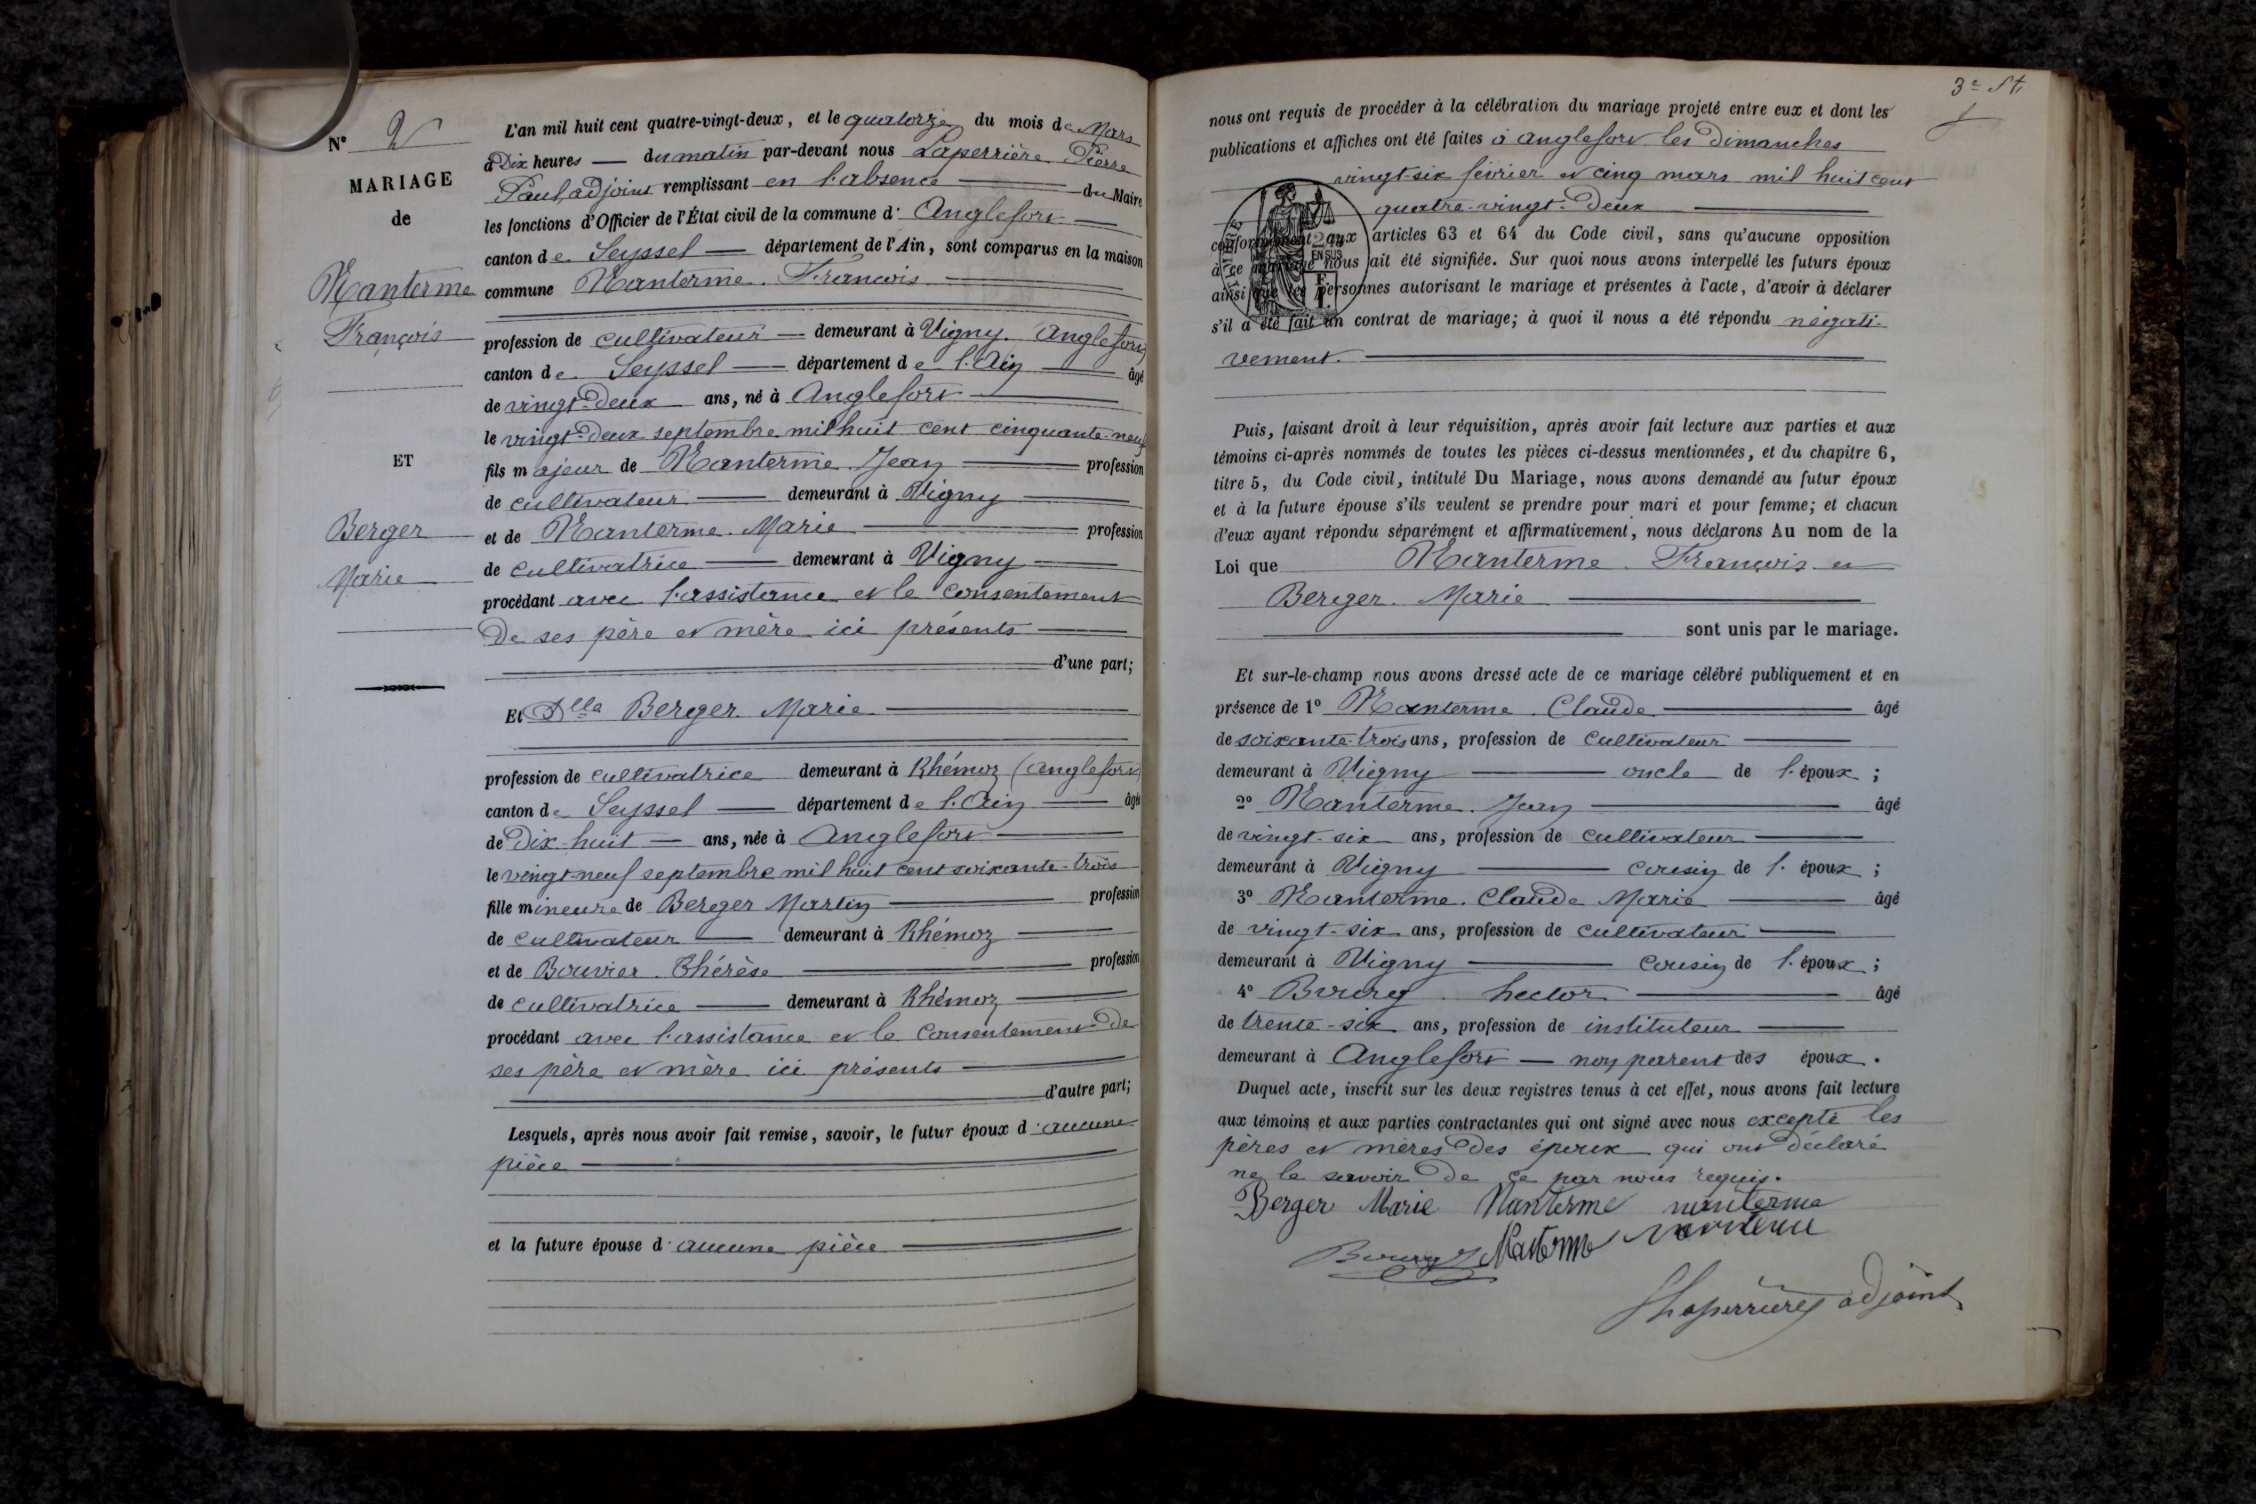 N° 2
MARIAGE
de
Nanterme
François
ET
Berger
Marie
L'an mil huit cent quatre-vingt-deux, et le quatorze du mois de Mars
à Dix heures — du matin par-devant nous Laperrière Pierre
Paul, adjoint remplissant en l'absence — du Maire
les fonctions d'Officier de l'État civil de la commune d' Anglefort —
canton de Seyssel — département de l'Ain, sont comparus en la maison
commune Nanterme. François —
profession de cultivateur — demeurant à Vigny. Anglefort
canton de Seyssel — département de l'Ain — âgé
de vingt-Deux ans, né à Anglefort —
le vingt-deux septembre mil huit cent cinquante-neuf
fils majeur de Nanterme. Jean — profession
de cultivateur — demeurant à Vigny —
et de Nanterme. Marie — profession
de cultivatrice — demeurant à Vigny —
procédant avec l'assistance et le consentement
De ses père et mère ici présents —
d'une part;
Et Dlle Berger. Marie —
profession de cultivatrice demeurant à Rhémoz (Anglefort)
canton de Seyssel — département de l'Ain — âgée
de Dix-huit — ans, née à Anglefort —
le vingt-neuf septembre mil huit cent soixante-trois
fille mineure de Berger Martin — profession
de cultivateur — demeurant à Rhémoz —
et de Bouvier. Thérèse — profession
de cultivatrice — demeurant à Rhémoz —
procédant avec l'assistance et le consentement De
ses père et mère ici présents —
d'autre part;
Lesquels, après nous avoir fait remise, savoir, le futur époux d'aucune
pièce —
et la future épouse d'aucune pièce —
3e
nous ont requis de procéder à la célébration du mariage projeté entre eux et dont les
publications et affiches ont été faites à anglefort les dimanches
vingt-six février et cinq mars mil huit cent
quatre-vingt-Deux —
conformément aux articles 63 et 64 du Code civil, sans qu'aucune opposition
à ce mariage nous ait été signifiée. Sur quoi nous avons interpellé les futurs époux
ainsi que les personnes autorisant le mariage et présentes à l'acte, d'avoir à déclarer
s'il a été fait un contrat de mariage; à quoi il nous a été répondu négati-
vement. —
EN SUS
Puis, faisant droit à leur réquisition, après avoir fait lecture aux parties et aux
témoins ci-après nommés de toutes les pièces ci-dessus mentionnées, et du chapitre 6,
titre 5, du Code civil, intitulé Du Mariage, nous avons demandé au futur époux
et à la future épouse s'ils veulent se prendre pour mari et pour femme; et chacun
d'eux ayant répondu séparément et affirmativement, nous déclarons Au nom de la
Loi que Nanterme. François. et
Berger. Marie —
sont unis par le mariage.
Et sur-le-champ nous avons dressé acte de ce mariage célébré publiquement et en
présence de 1° Nanterme. Claude — âgé
de soixante-trois ans, profession de cultivateur —
demeurant à Vigny — oncle de l'époux ;
2° Nanterme. Jean — âgé
de vingt-six ans, profession de cultivateur —
demeurant à Vigny — cousin de l'époux ;
3° Nanterme. Claude Marie — âgé
de vingt-six ans, profession de cultivateur —
demeurant à Vigny — cousin de l'époux ;
4° Bourg. hector — âgé
de trente-six ans, profession de instituteur —
demeurant à Anglefort — non parent des époux.
Duquel acte, inscrit sur les deux registres tenus à cet effet, nous avons fait lecture
aux témoins et aux parties contractantes qui ont signé avec nous excepté les
pères et mères Des époux qui ont déclaré
ne le savoir De ce par nous requis.
Berger Marie Nanterme nanterme
Bourg Nanterme
Laperrière adjoint